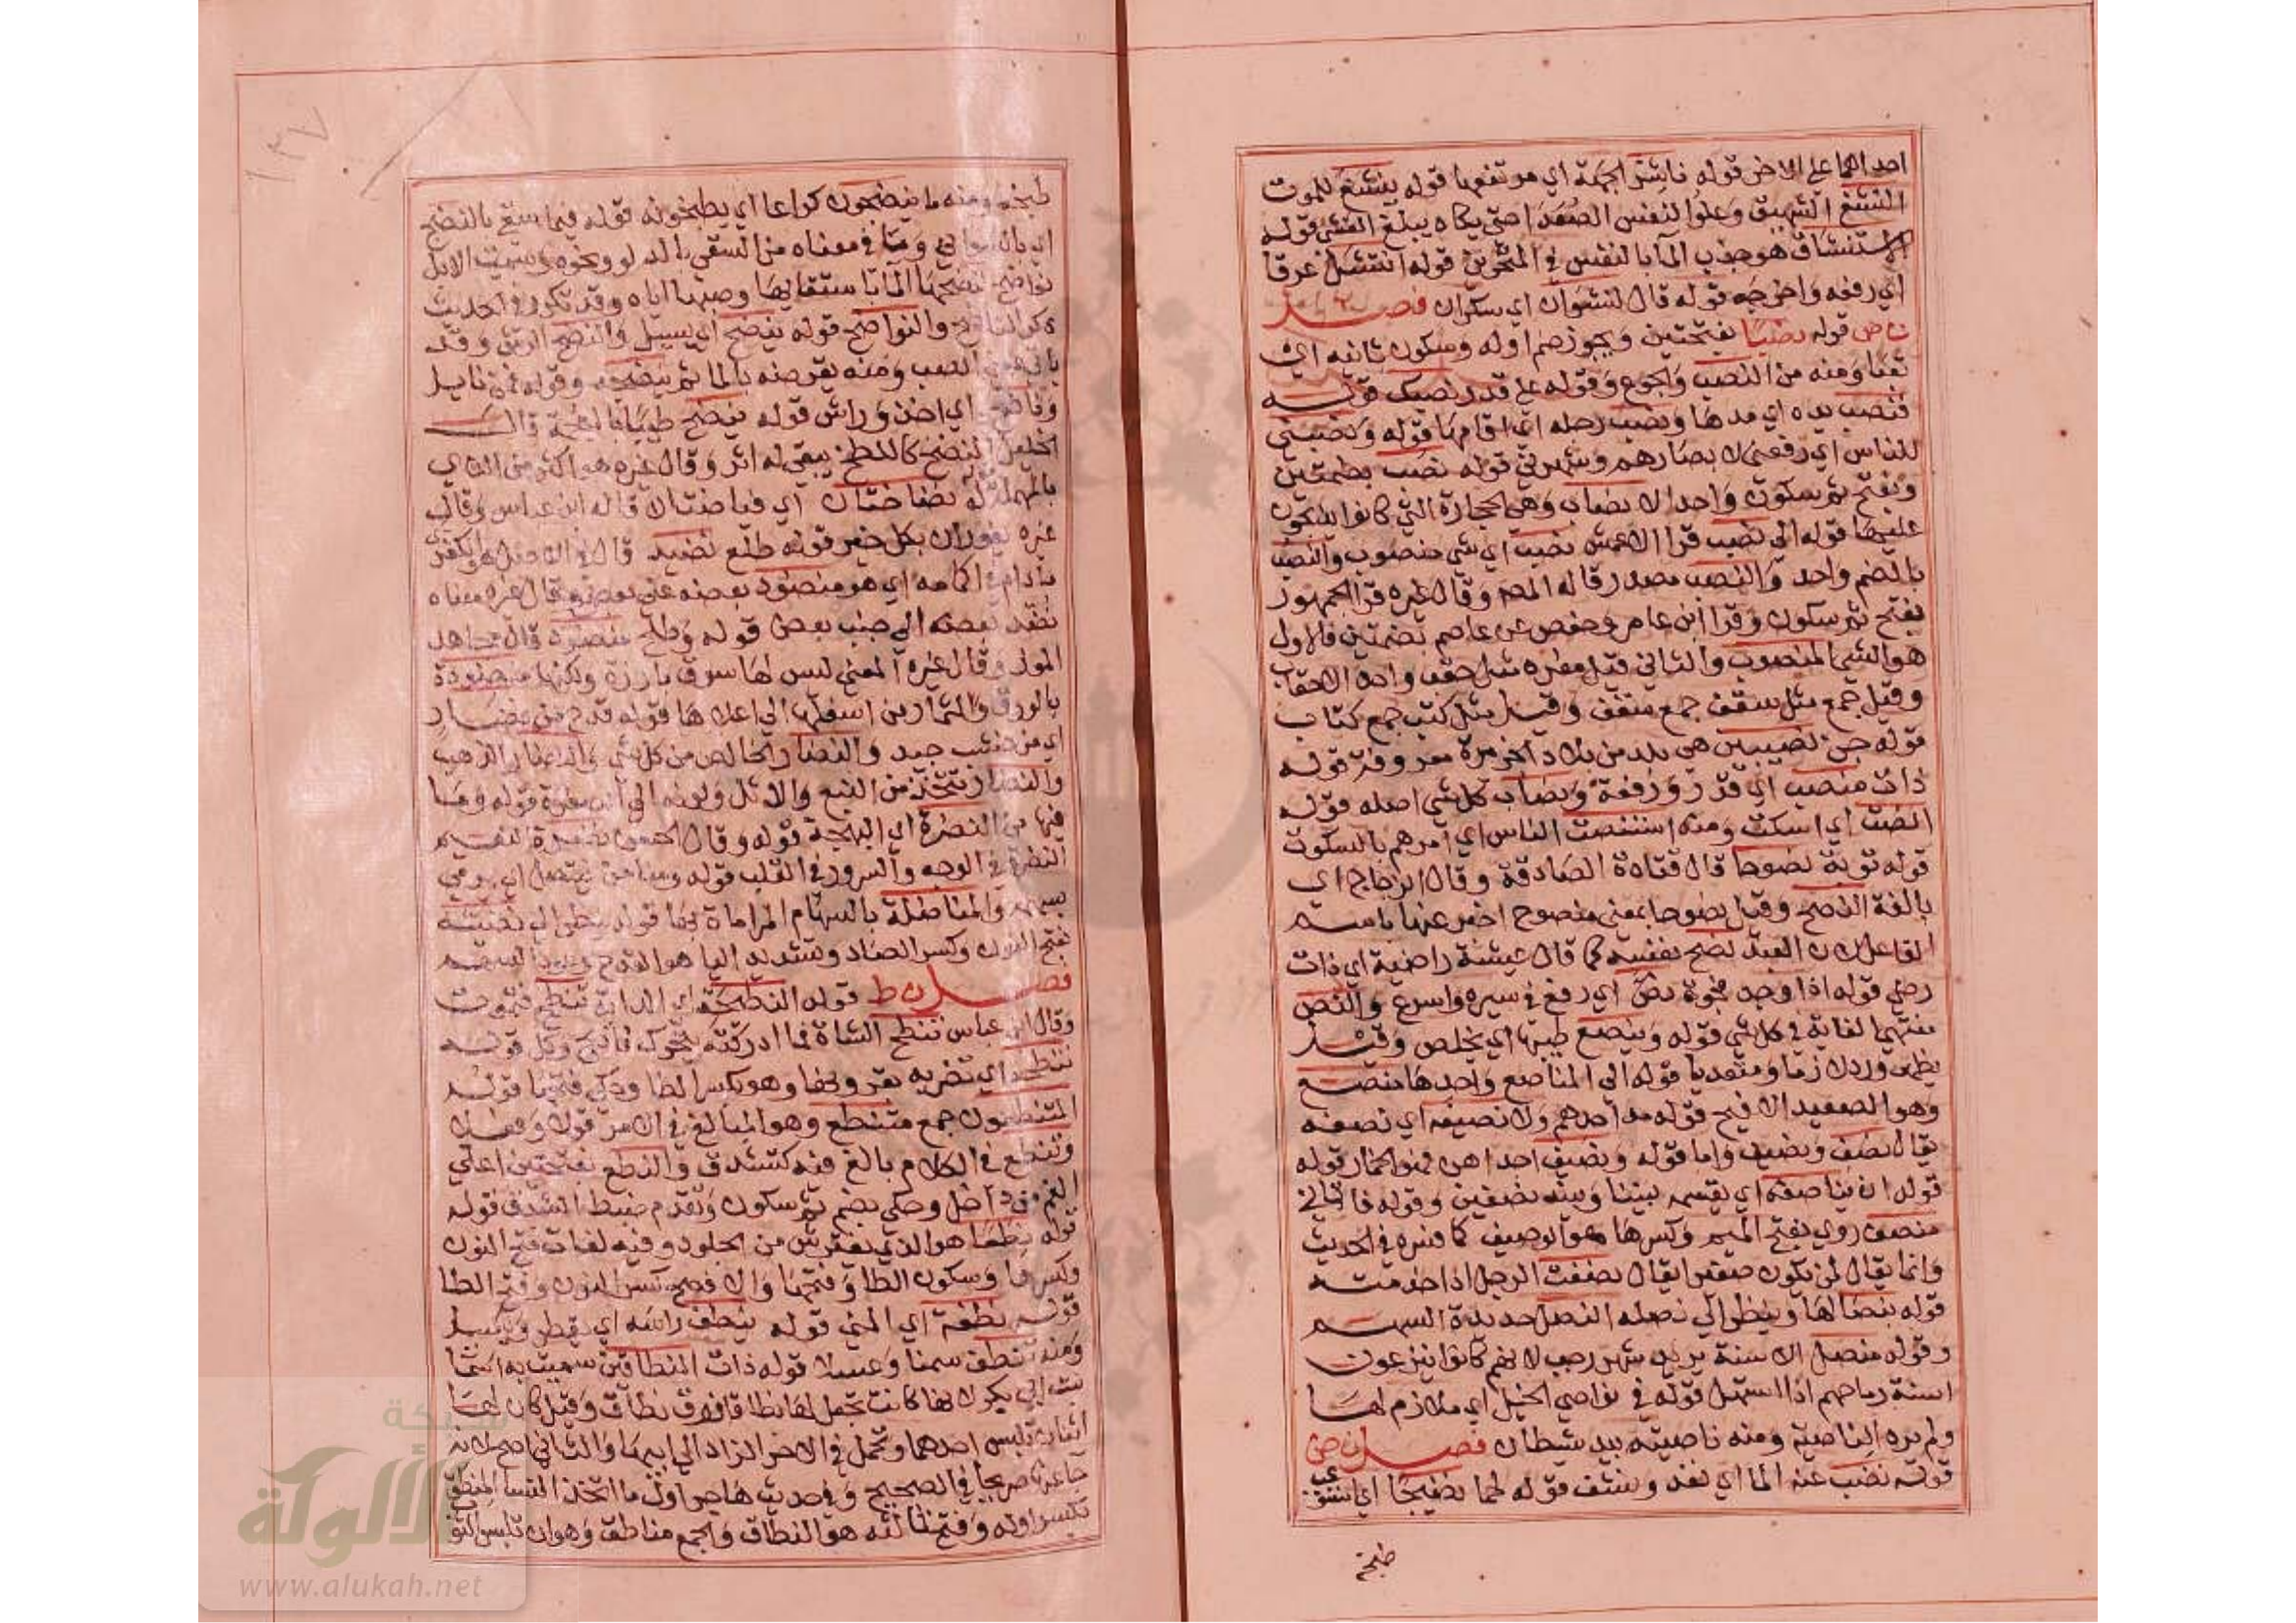 احداهما على الاخر قوله ناشز الجبهة اي مرتفعها قوله ينشغ للموت
النشغ الشهيق وعلو النفس الصعدا حتى يكاد يبلغ الغشي قوله
الاستنشاق هو جذب الما بالنفس في المنخرين قوله انتشل عرقا
اي رفعه واخرجه قوله قال لنشوان اي سكران فصل
ن ص قوله نصبا بفتحتين ويجوز ضم اوله وسكون ثانيه اي
تعبا ومنه من النصب والجوع وقوله على قدر نصبك قوله
فنصب يده اي مدها ونصب رجله اي اقامها قوله ونصبني
للناس اي رفعني لابصارهم وشهرني قوله نصب بضمتين
وبفتح ثم سكون واحد الانصاب وهي الحجارة التي كانوا يذبحون
عليها قوله الى نصب قرا الاعمش نصب اي شي منصوب والنصب
بالضم واحد والنصب مصدر قاله المص وقال غيره قرا الجمهور
بفتح ثم سكون وقرا ابن عامر وحفص عن عاصم بضمتين فالاول
هو الشي المنصوب والثاني قيل مفرد مثل حقب واحد الاحقاب
وقيل جمع مثل سقف جمع سقف وقيل مثل كتب جمع كتاب
قوله جن نصيبين هي بلد من بلاد الجزيرة معروفة قوله
ذات منصب اي قدر ورفعة ونصاب كل شي اصله قوله
انصت اي اسكت ومنه استنصت الناس اي امرهم بالسكوت
قوله توبة نصوحا قال قتادة الصادقة وقال الزجاج اي
بالغة النصح وقيل نصوحا بمعنى منصوح اخبر عنها باسم
الفاعل لان العبد نصح نفسه كما قال عيشة راضية اي ذات
رضي قوله اذا وجد فجوة نص اي رفع في سيره واسرع والنص
منتهى الغاية في كل شي قوله وينصع طيبها اي يخلص وقيل
يظهر وردلازما ومتعديا قوله الى المناصع واحدها منصع
وهو الصعيد الافيح قوله مد احدهم ولا نصيفه اي نصفه
يقال نصف ونصيف واما قوله ونصيف احداهن فهو الخمار قوله
قوله ان يناصفه اي يقسم بيننا وبينه نصفين وقوله فاتاني
منصف روي بفتح الميم وكسرها وهو الوصيف كما فسره في الحديث
وانما يقال لمن يكون صغيرا يقال نصفت الرجل اذا خدمته
قوله بنصالها وينظر الى نصله النصل حديدة السهم
وقوله منصل الاسنة يريد شهر رجب لانهم كانوا ينزعون
اسنة رماحهم اذا استهل قوله في نواصي الخيل اي ملازم لها
ولم يرد الناصية ومنه ناصيته بيد شيطان فصل ن ض
قوله نضب عنه الما اي نفد ونشف قوله لحما نضيجا اي
طبخه
طبخه ومنه ما ينضجون كراعا اي يطبخونه قوله فيما سقي بالنضح
اي بالسواني وما في معناه من السقي بالدلو ونحوه وسميت الابل
نواضح لنضحها الما باستقائها وصبها اياه وقد تكرر في الحديث
ذكر الناضح والنواضح قوله ينضح اي يسيل والنضح الرش وقد
ياتي بمعنى الصب ومنه تقرصه بالما ثم ينضحه وقوله فمن نايل
وناضح اي اخذ وراش قوله ينضخ طيبا بالمعجمة قال
الخليل النضخ كاللطخ يبقى له اثر وقال غيره هو اكثر من الذي
بالمهملة قوله نضاختان اي فياضتان قاله ابن عباس وقال
غيره يفوران بكل خير قوله طلع نضيد قال في الاصل هو الكفرى
مادام في اكمامه اي هو منضود بعضه على بعض وقال غيره معناه
نضد بعضه الى جنب بعض قوله وطلح منضود قال مجاهد
الموز وقال غيره المعنى ليس لها سوق بارزة ولكنها منضودة
بالورق والثمار من اسفلها الى اعلاها قوله قدح من نضار
اي من خشب جيد والنضار الخالص من كل شي والنضار الذهب
والنضار يتخذ من النبع والاثل ولونه الى الصفرة قوله وما
فيها من النضرة اي البهجة قوله وقال الحسن نضرة النعيم
النضرة في الوجه والسرور في القلب قوله ومنا من ينتضل اي يرمي
بسهم والمناضلة بالسهام المراماة بها قوله ينظر الى نضيه
بفتح النون وكسر الضاد وتشديد اليا هو القدح وعود السهم
فصل ن ط قوله النطيحة اي الدابة تنطح فتموت
وقال ابن عباس تنطح الشاة فما ادركته يتحرك فاذبح وكل قوله
تنطحه اي تضربه بقرونها وهو بكسر الطا وحكي فتحها قوله
المتنطعون جمع متنطع وهو المبالغ في الامر قولا وفعلا
وتنطع في الكلام بالغ فيه كتشدق والنطع بفتحتين اعلى
الفم من داخل وحكي بضم ثم سكون وتقدم ضبط الشدق قوله
قوله نطعا هو الذي يفترش من الجلود وفيه لغات فتح النون
وكسرها وسكون الطا وفتحها والافصح كسر النون وفتح الطا
قوله نطفة اي المني قوله ينطف راسه اي يقطر ويسيل
ومنه تنطف سمنا وعسلا قوله ذات النطاقين سميت به اسما
بنت ابي بكر لانها كانت تجعل لها نطاقا فوق نطاق وقيل كان لها
اثنان تلبس احدهما وتحمل في الاخر الزاد الى ابيها والثاني اصح لانه
جا عنها صريحا في الصحيح وفي حديث هاجر اول ما اتخذ النسا المنطق
بكسر اوله وفتح ثالثه هو النطاق والجمع مناطق وهو ان تلبس